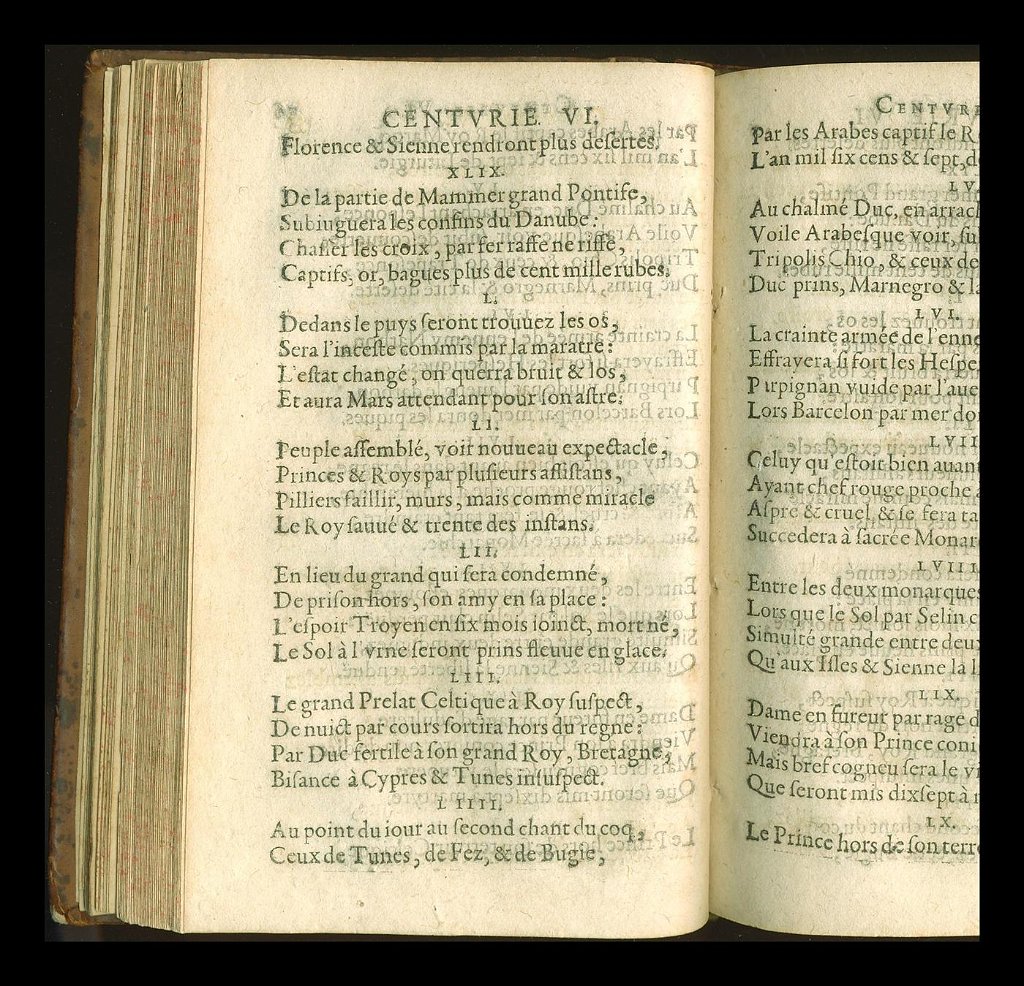 CENTVRIE VI.
Florence & Sienne rendront plus desertes.
XLIX.
De la partie de Mammer grand Pontife,
Subiuguera les confins du Danube:
Chasser les croix, par fer raffe ne riffe,
Captifs, or, bagues plus de cent mille rubes.
L.
Dedans le puys seront trouuez les os,
Sera l'inceste commis par la maratre:
L'estat changé, on querra bruit & los,
Et aura Mars attendant pour son astre.
LI.
Peuple assemblé, voir nouueau expectacle,
Princes & Roys par plusieurs assistans,
Pilliers faillir, murs, mais comme miracle
Le Roy sauué & trente des instans.
LII.
En lieu du grand qui sera condemné,
De prison hors, son amy en sa place:
L'espoir Troyen en six mois ioinct, mort né,
Le Sol à l'vrne seront prins fleuue en glace.
LIII.
Le grand Prelat Celtique à Roy suspect,
De nuict par cours sortira hors du regne:
Par Duc fertile à son grand Roy, Bretagne,
Bisance à Cypres & Tunes insuspect.
LIIII.
Au point du iour au second chant du coq,
Ceux de Tunes, de Fez, & de Bugie,
CENTVRI
Par les Arabes captif le R
L'an mil six cens & sept, d
LV.
Au chalmé Duc, en arrach
Voile Arabesque voir, su
Tripolis Chio, & ceux de
Duc prins, Marnegro & la
LVI.
La crainte armée de l'enne
Effrayera si fort les Hespe
Purpignan vuide par l'aue
Lors Barcelon par mer do
LVII
Celuy qu'estoit bien auant
Ayant chef rouge proche
Aspre & cruel, & se fera ta
Succedera à sacrée Monar
LVIII
Entre les deux monarques
Lors que le Sol par Selin c
Simulté grande entre deux
Qu'aux Isles & Sienne la l
LIX.
Dame en fureur par rage d
Viendra à son Prince coni
Mais bref cogneu sera le vi
Que seront mis dixsept à
LX.
Le Prince hors de son terr